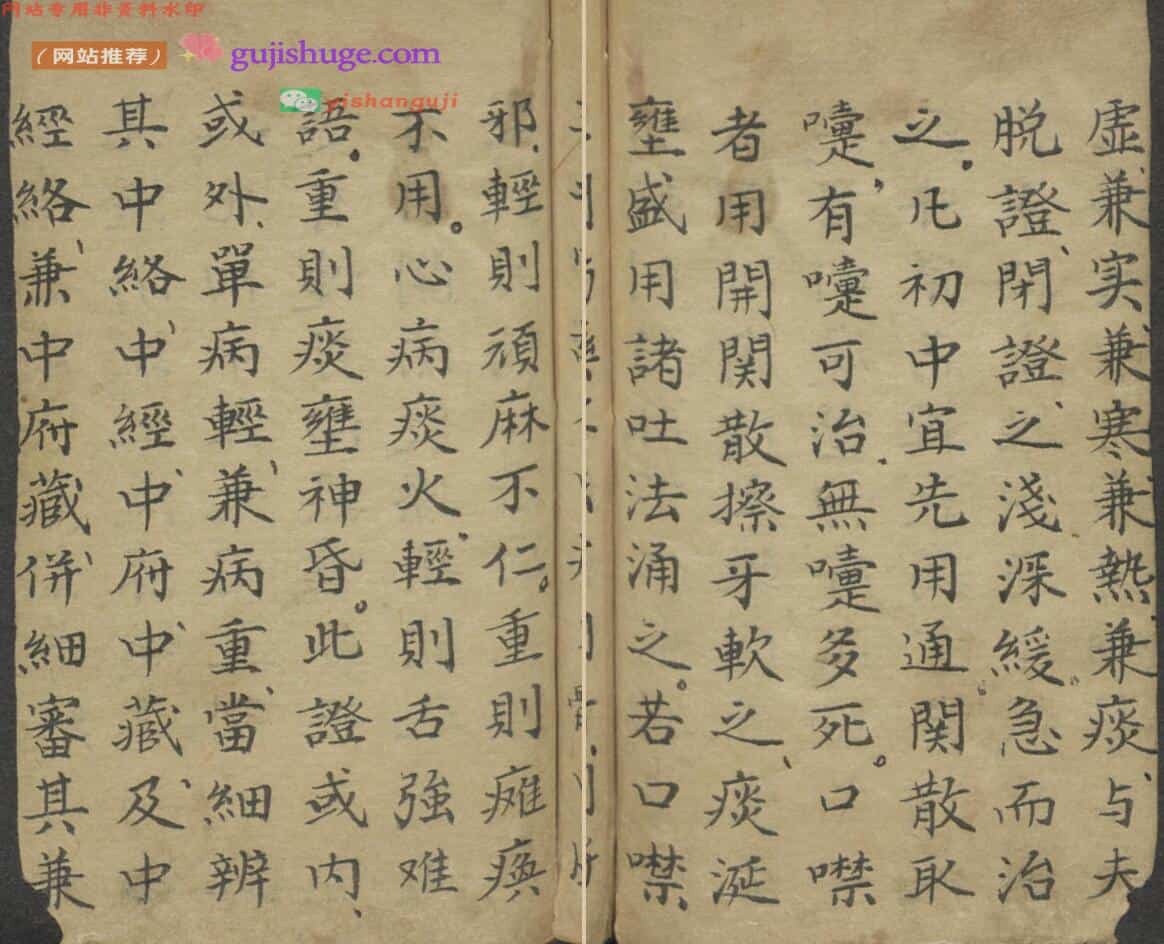 网站专用非资料水印
(网站推荐)
gujishuge.com
yishanguji
虛、兼实、兼寒、兼熱、兼痰、与夫
脫證、閉證、之淺深緩。急而治
之。凡初中宜先用通関散取
嚏、有嚏可治、無嚏多死。口噤
者用開関散擦牙軟之、痰涎
壅盛用諸吐法涌之。若口噤、
邪、輕則頑麻不仁。重則癱瘓
不用。心病痰火、輕則舌強难
語。重則痰壅神昏。此證或内、
或外、單病輕、兼病重、當細辨
其中絡、中經、中府、中藏、及中
經絡、兼中府藏、併、細審其兼